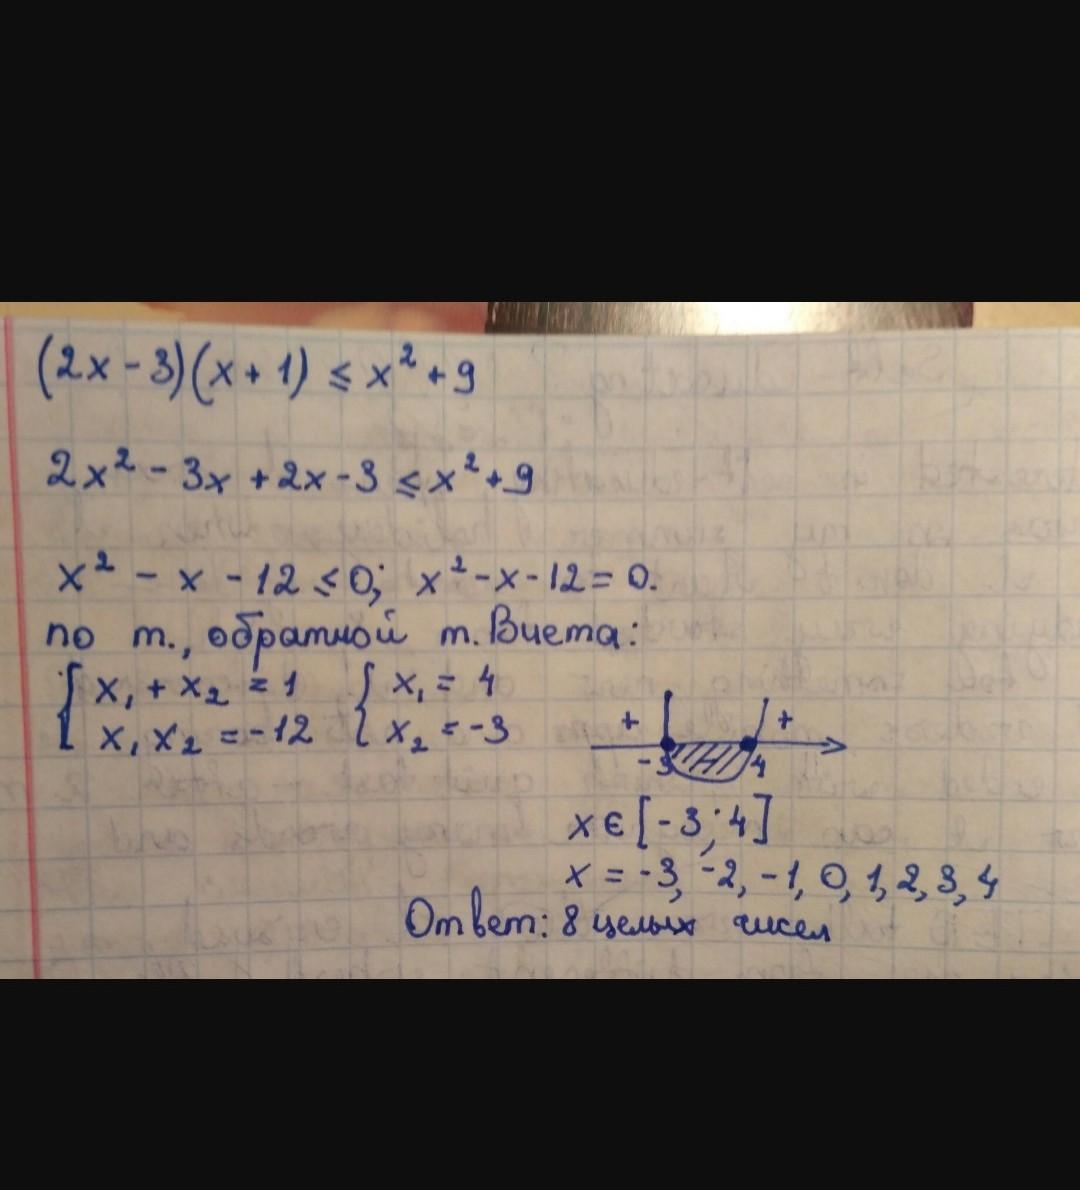 (2x - 3)(x + 1) ≤ x² + 9
2x² - 3x + 2x - 3 ≤ x² + 9
x² - x - 12 ≤ 0; x² - x - 12 = 0.
по т., обратной т. Виета:
{ x₁ + x₂ = 1 { x₁ = 4
{ x₁ x₂ = -12 { x₂ = -3
+ - +
-3 4
x ∈ [-3; 4]
x = -3, -2, -1, 0, 1, 2, 3, 4
Ответ: 8 целых чисел